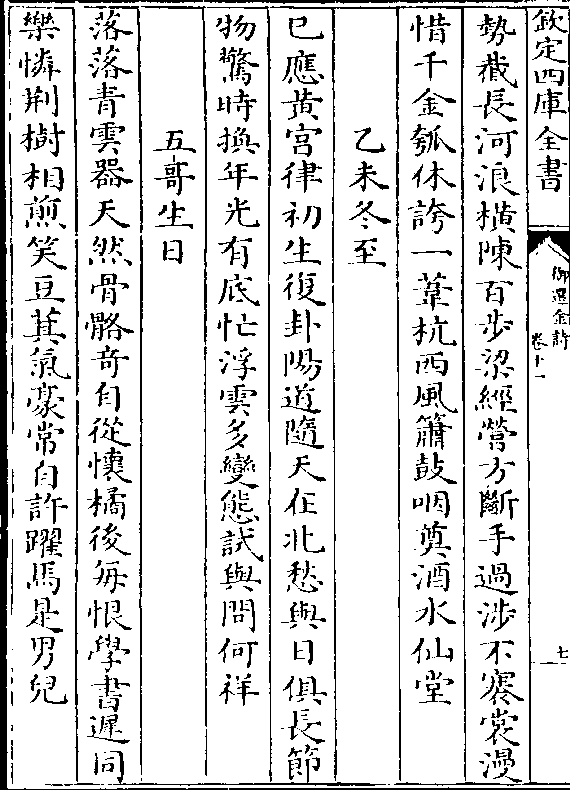 欽定四庫全書
御選金詩
卷十一
七
勢截長河浪橫陳百步梁經營方斷手過涉不褰裳漫
惜千金瓠休誇一葦杭西風簫鼓咽奠酒水仙堂
乙未冬至
已應黃宮律初生復卦陽道隨天在北愁與日俱長節
物驚時換年光有底忙浮雲多變態試與問何祥
五哥生日
落落青雲器天然骨骼奇自從懷橘後每恨學書遲同
樂憐荆樹相煎笑豆萁氣豪常自許躍馬是男兒